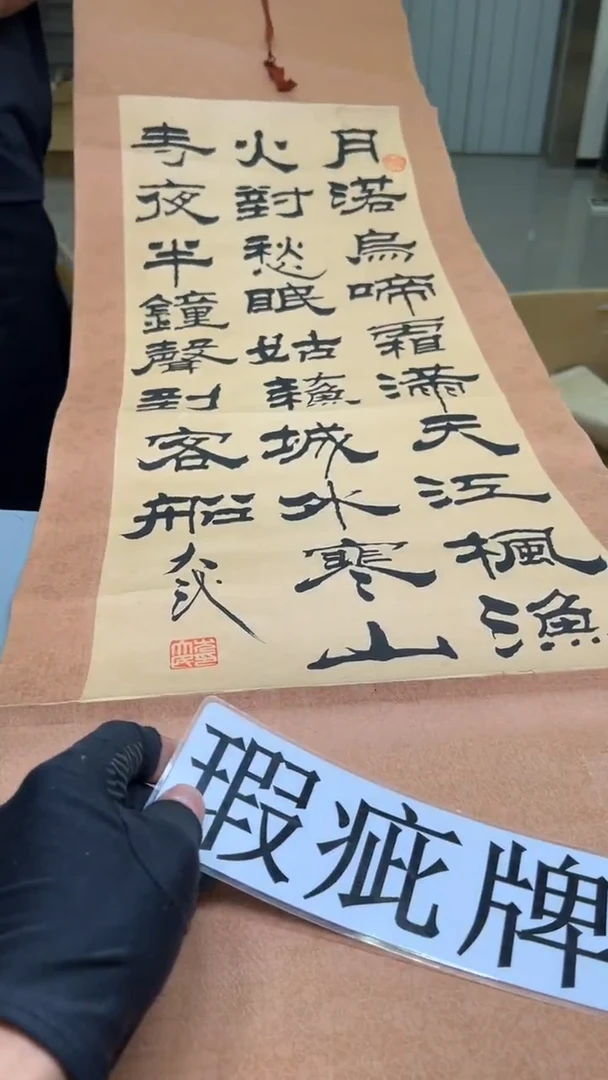 月落烏啼霜滿天江楓漁
火對愁眠姑蘇城外寒山
寺夜半鐘聲到客船
瑕疵牌